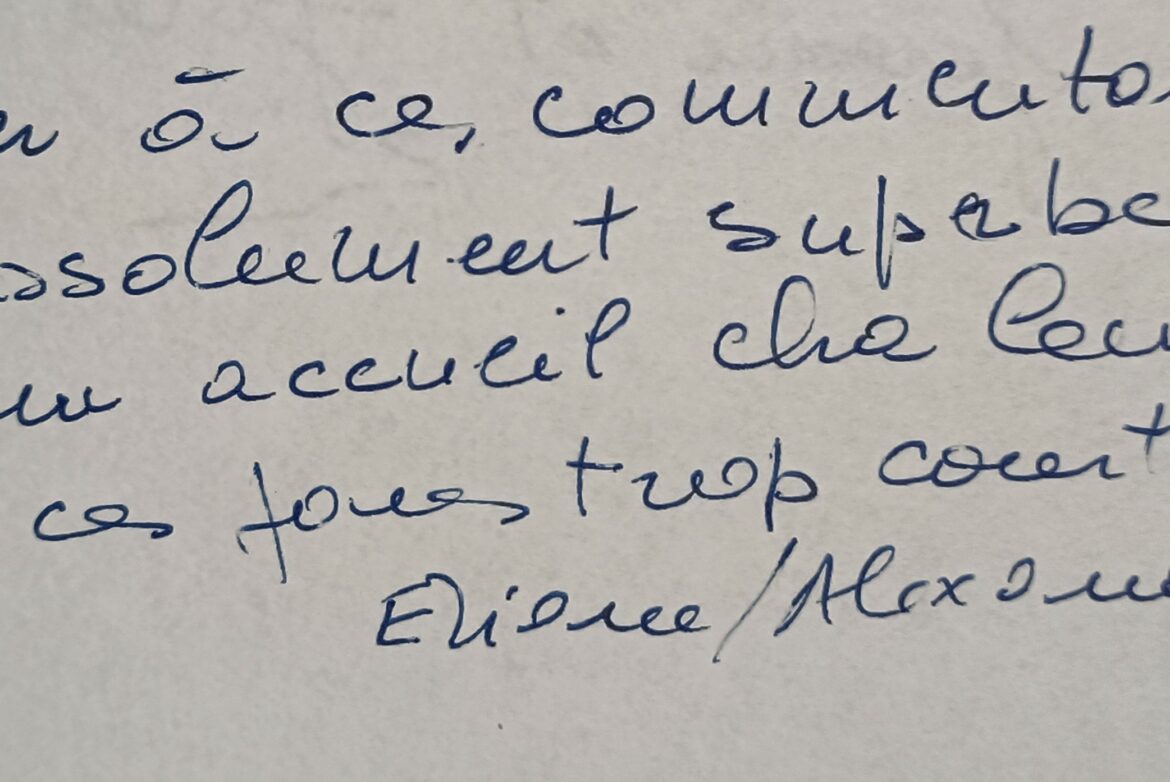 à ces commenta
ssolument superbe
un accueil chaleu
ces jours trop court
Eliane/Alexan